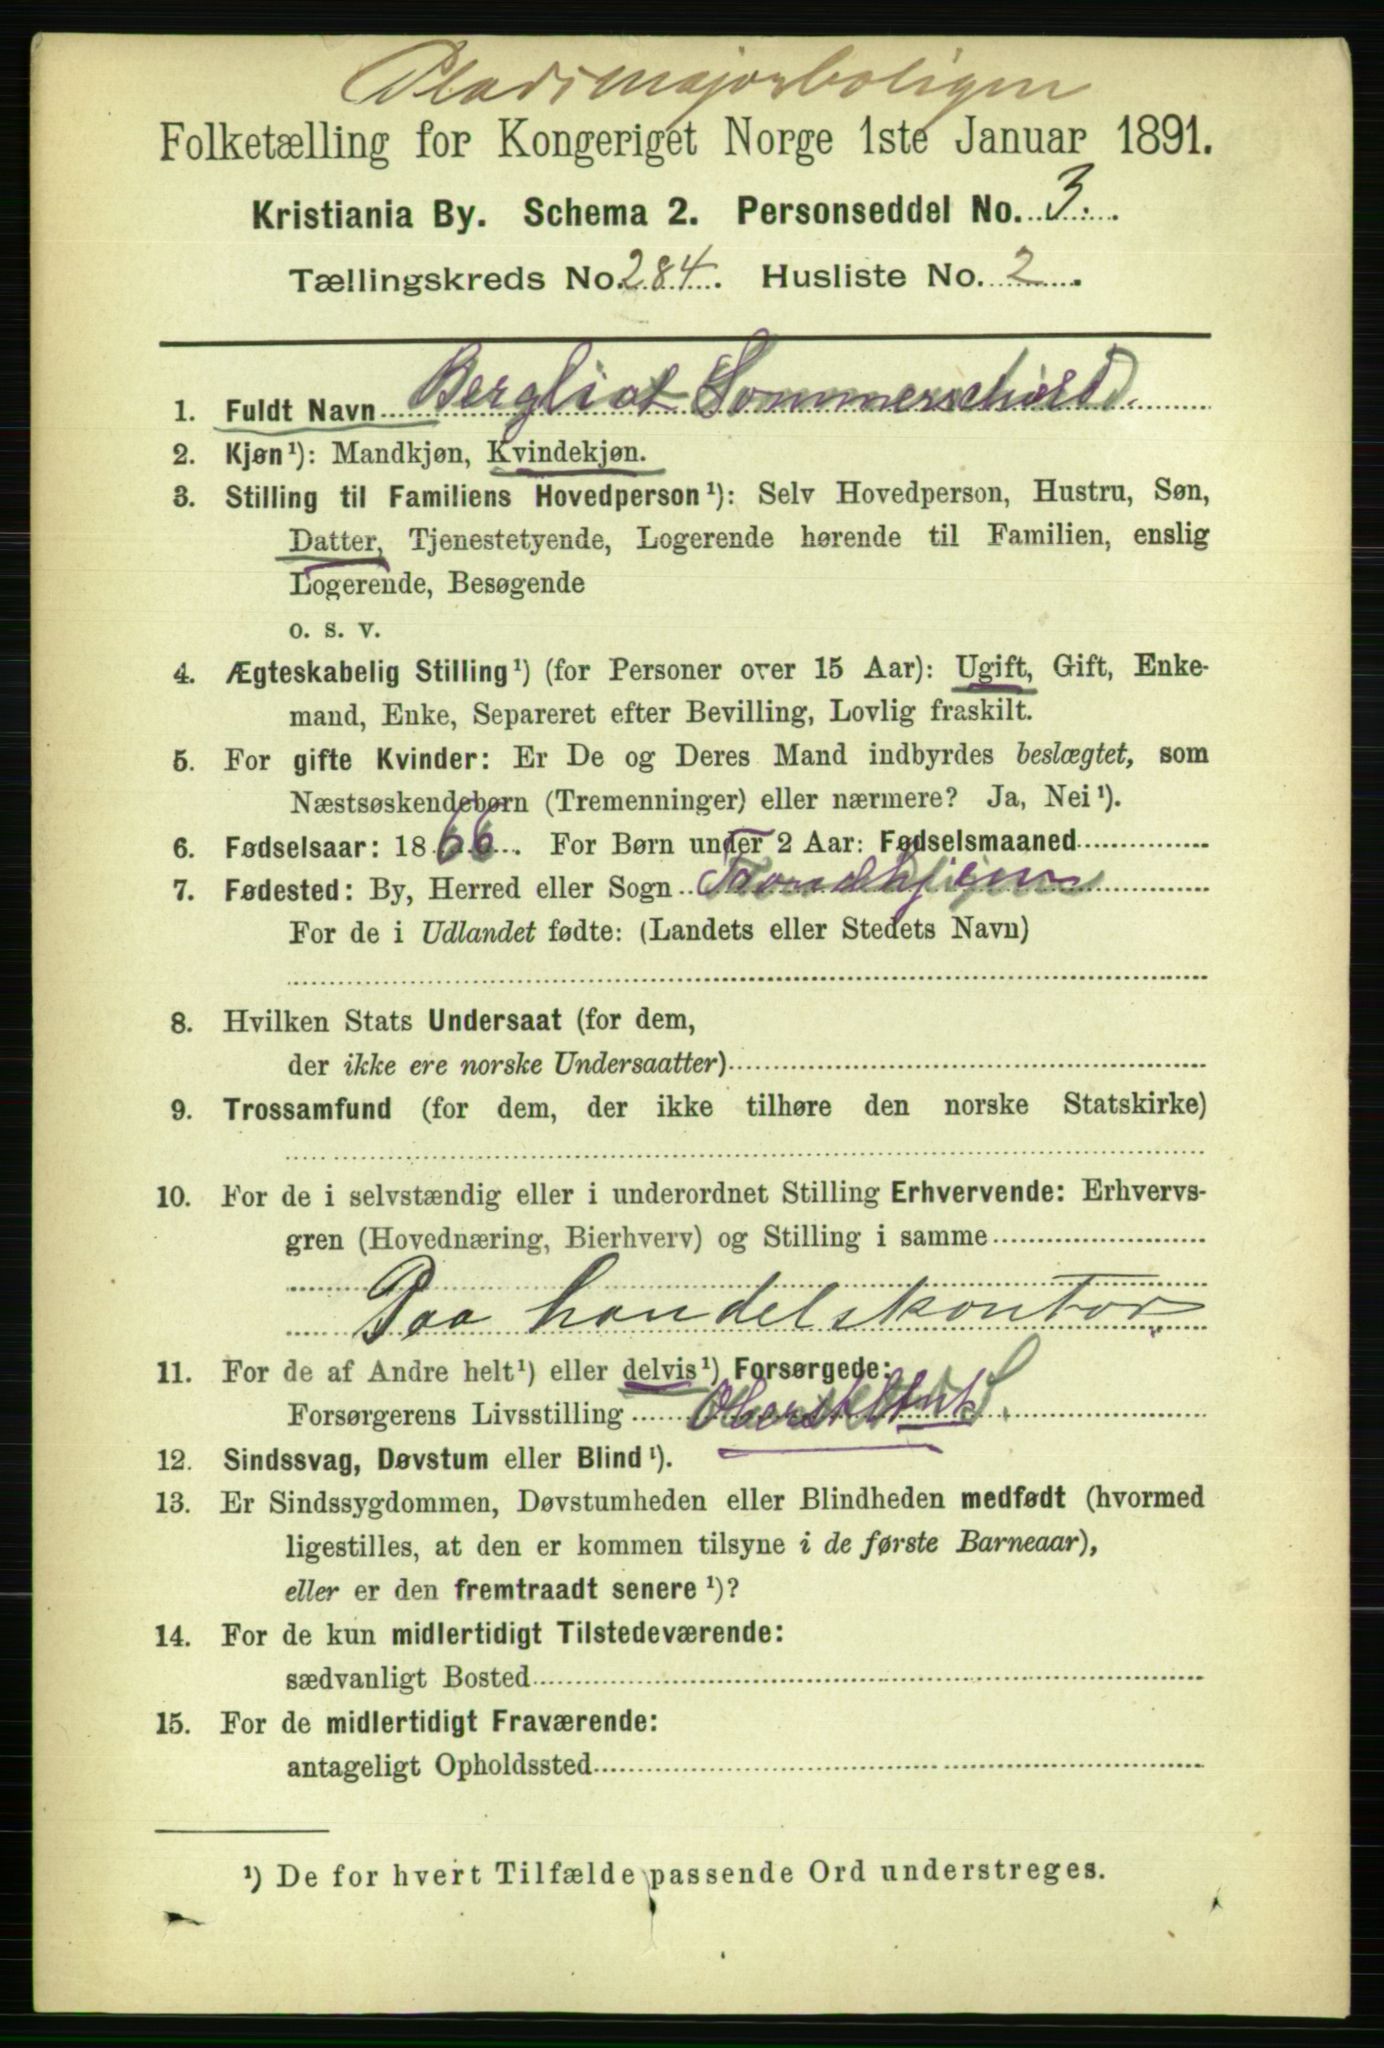 Pladsmajorboligen
Folketælling for Kongeriget Norge 1ste Januar 1891.
Kristiania By. Schema 2. Personseddel No. 3.
Tællingskreds No. 284. Husliste No. 2.
1. Fuldt Navn Bergliot Sommerschield.
2. Kjøn¹): Mandkjøn, Kvindekjøn.
3. Stilling til Familiens Hovedperson¹): Selv Hovedperson, Hustru, Søn,
Datter, Tjenestetyende, Logerende hørende til Familien, enslig
Logerende, Besøgende
o. s. v.
4. Ægteskabelig Stilling¹) (for Personer over 15 Aar): Ugift, Gift, Enke-
mand, Enke, Separeret efter Bevilling, Lovlig fraskilt.
5. For gifte Kvinder: Er De og Deres Mand indbyrdes beslægtet, som
Næstsøskendebørn (Tremenninger) eller nærmere? Ja, Nei¹).
6. Fødselsaar: 1866. For Børn under 2 Aar: Fødselsmaaned
7. Fødested: By, Herred eller Sogn Trondhjem
For de i Udlandet fødte: (Landets eller Stedets Navn)
8. Hvilken Stats Undersaat (for dem,
der ikke ere norske Undersaatter)
9. Trossamfund (for dem, der ikke tilhøre den norske Statskirke)
10. For de i selvstændig eller i underordnet Stilling Erhvervende: Erhvervs-
gren (Hovednæring, Bierhverv) og Stilling i samme
Paa handelskontor.
11. For de af Andre helt¹) eller delvis¹) Forsørgede:
Forsørgerens Livsstilling Oberstltnt S.
12. Sindssvag, Døvstum eller Blind¹).
13. Er Sindssygdommen, Døvstumheden eller Blindheden medfødt (hvormed
ligestilles, at den er kommen tilsyne i de første Barneaar),
eller er den fremtraadt senere¹)?
14. For de kun midlertidigt Tilstedeværende:
sædvanligt Bosted
15. For de midlertidigt Fraværende:
antageligt Opholdssted
¹) De for hvert Tilfælde passende Ord understreges.